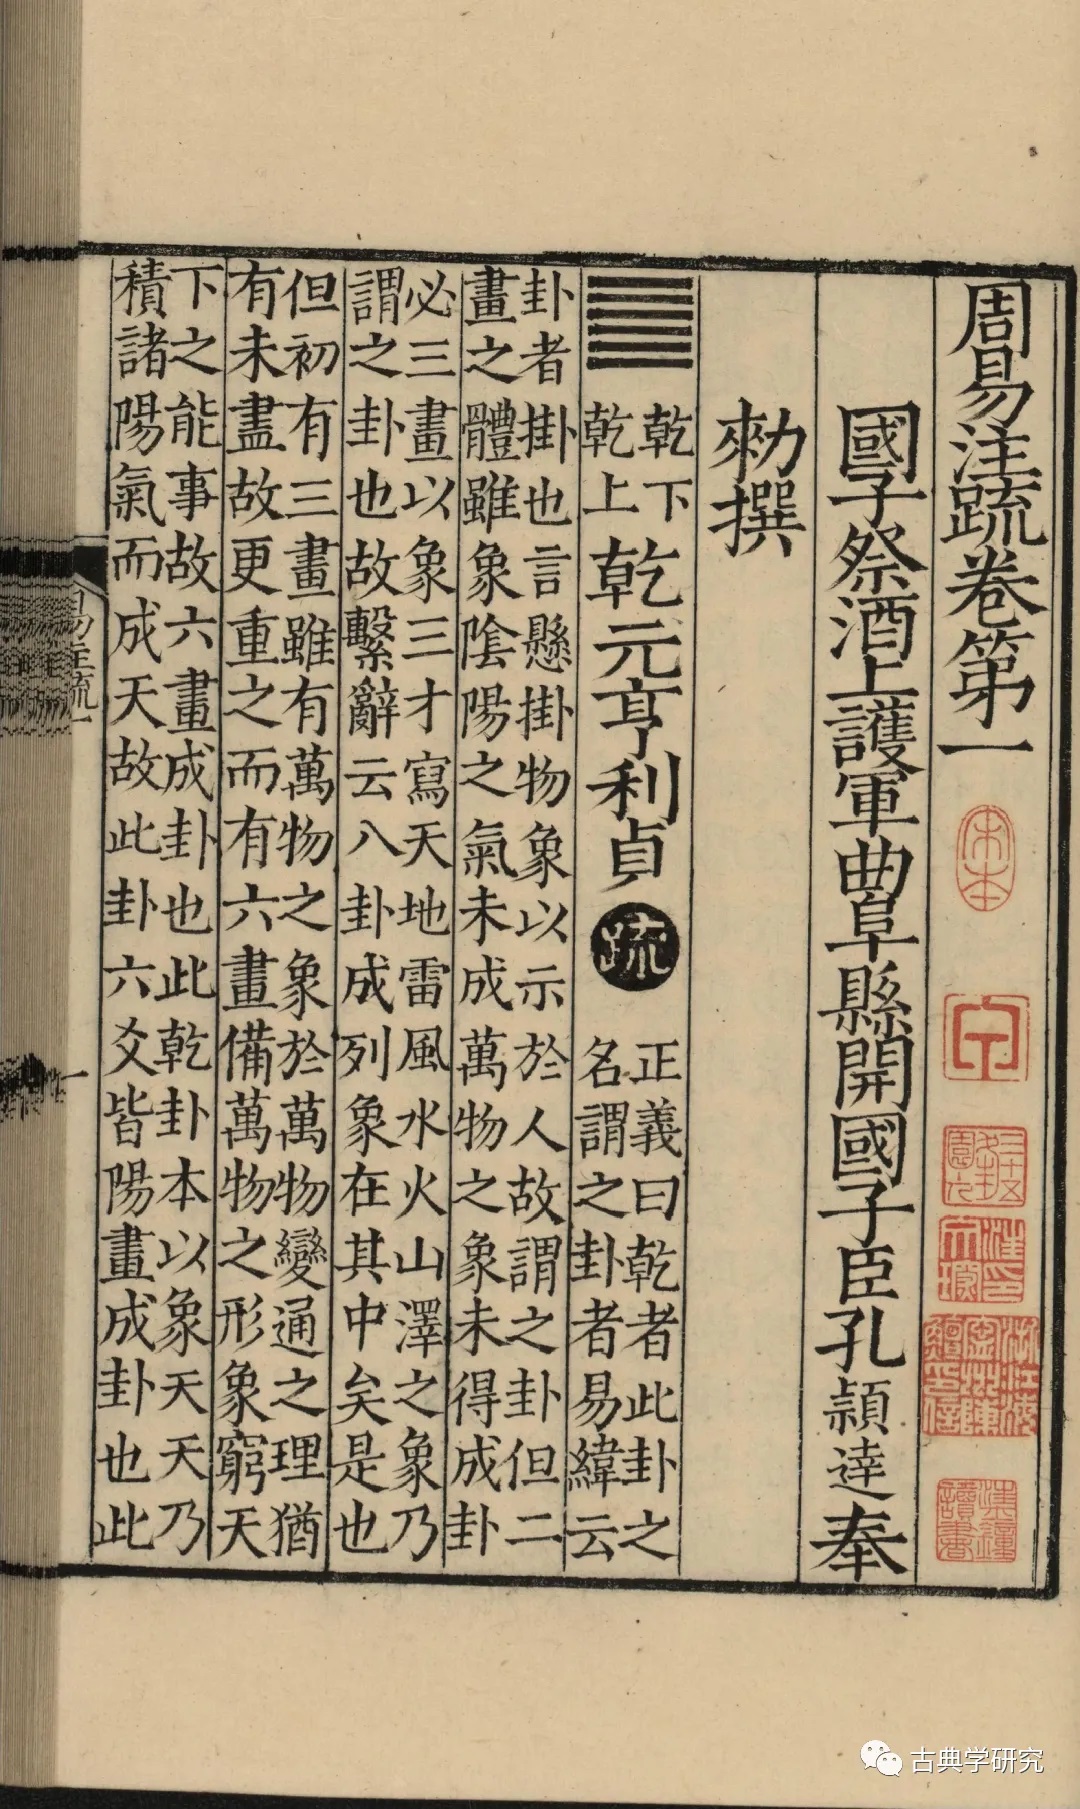 周易注疏卷第一
國子祭酒上護軍曲阜縣開國子臣孔頴達奉
勑撰
乾下
乾上
乾元亨利貞
疏
正義曰乾者此卦之
名謂之卦者易緯云
卦者掛也言懸掛物象以示於人故謂之卦但二
畫之體雖象陰陽之氣未成萬物之象未得成卦
必三畫以象三才寫天地雷風水火山澤之象乃
謂之卦也故繫辭云八卦成列象在其中矣是也
但初有三畫雖有萬物之象於萬物變通之理猶
有未盡故更重之而有六畫備萬物之形象窮天
下之能事故六畫成卦也此乾卦本以象天天乃
積諸陽氣而成天故此卦六爻皆陽畫成卦也此
易注疏一
一
宋本
古典学研究